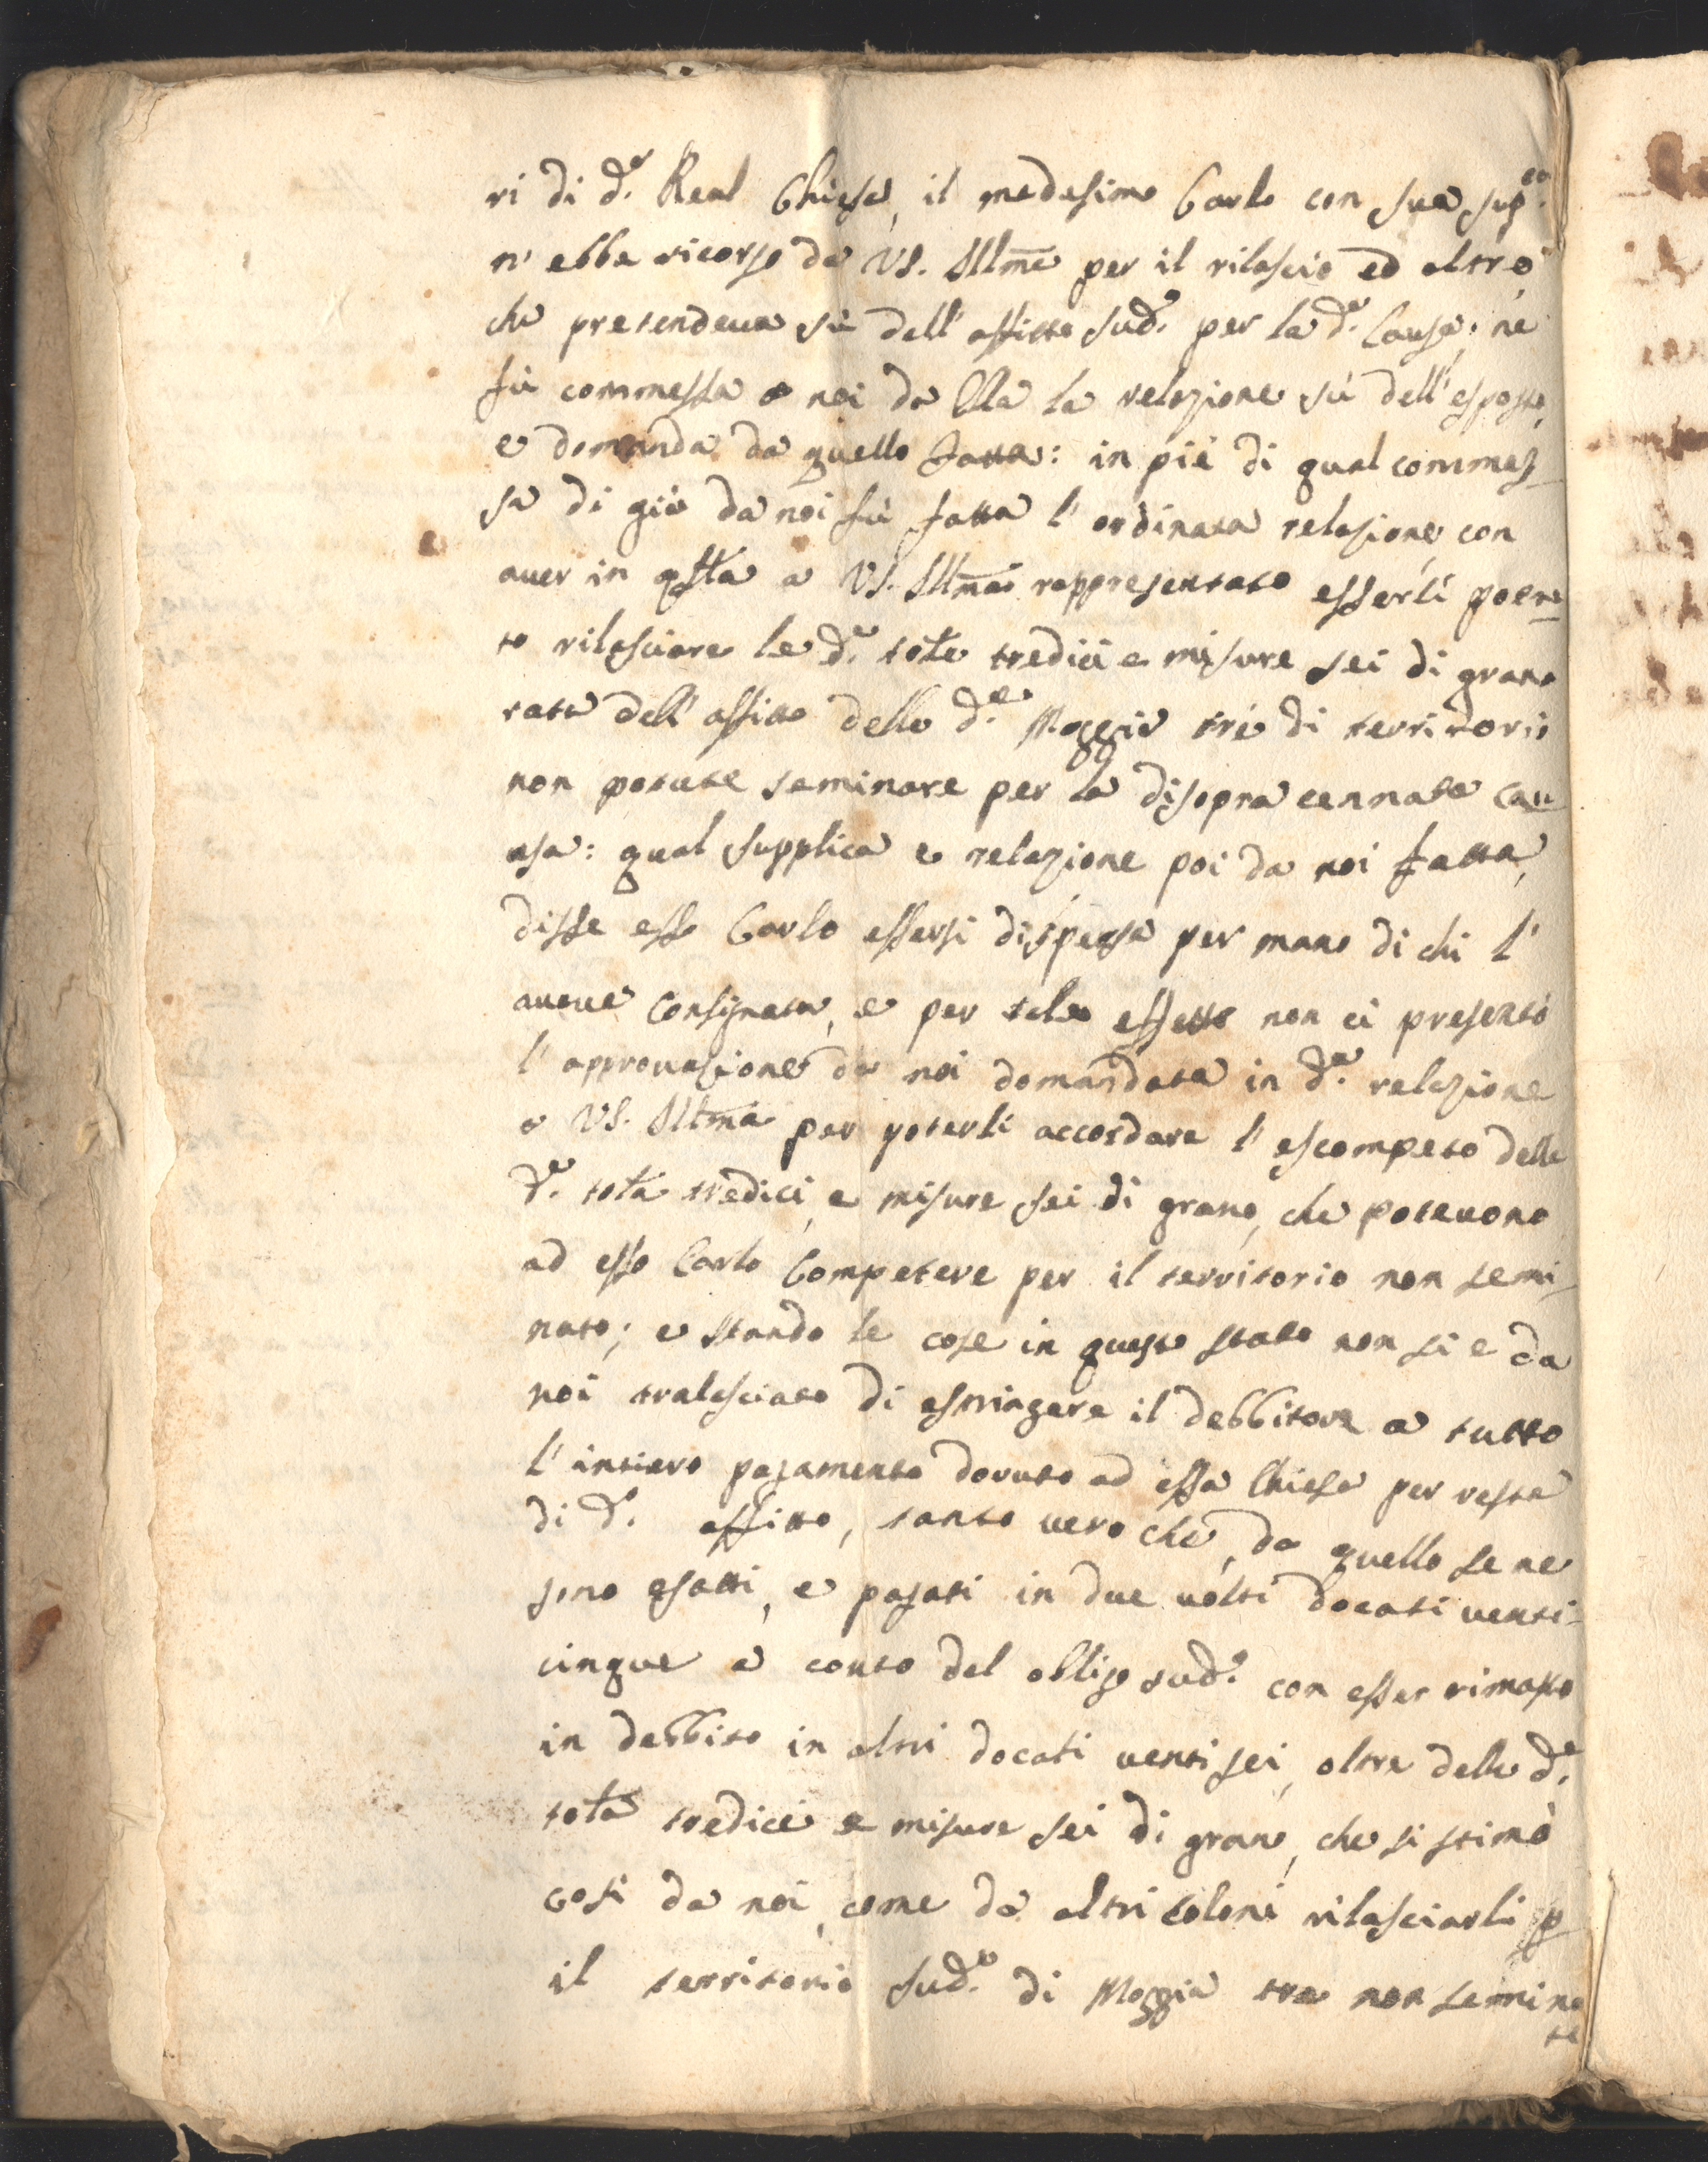 ri di d.ª Real Chiesa, il medesimo Carlo con sua sup.ca
n' ebbe ricorso da VS. Illma per il rilascio ed altro,
che pretendeva sù dell' affitto sud.º per la d.ª Causa; ne
fù commessa a noi da Ella la relazione sù dell' esposto,
e domanda da quello fatta: in piè di qual commes-
sa di già da noi fù fatta l' ordinata relasione, con
aver in qsta a VS. Illma rappresentato esserli potu-
to rilasciare le d.e tota tredici e misure sei di grano
rata dell' affitto delle d.e Moggia trè di territorio
non potute seminare per la disopra cennata cau-
usa: qual supplica e relazione poi da noi fatta,
disse esso Carlo essersi dispersa per mano di chi l'
aveva Consignata, e per tale effetto non ci presentò
l' approvasione da noi domandata in d.ª relazione
a VS. Illma per poterli accordare l' escomputo delle
d.e tota tredici, e misure sei di grano, che potevono
ad esso Carlo Competere per il territorio non semi-
nato; e stando le cose in questo stato non si e da
noi tralasciato di astringere il debbitore a tutto
l' intiero pagamento dovuto ad essa Chiesa per resta
di d.º affitto, tanto vero che, da quello se ne
sono esatti, e pagati in due volti docati venti-
cinque a conto del obligo sud.º con esser rimasto
in debbito in altri docati ventisei, oltre delle d.e
tota tredici e misure sei di grano, che si stimò
così da noi, come da altri coloni rilasciarli p
il territorio sud.º di Moggia tre non semina
te